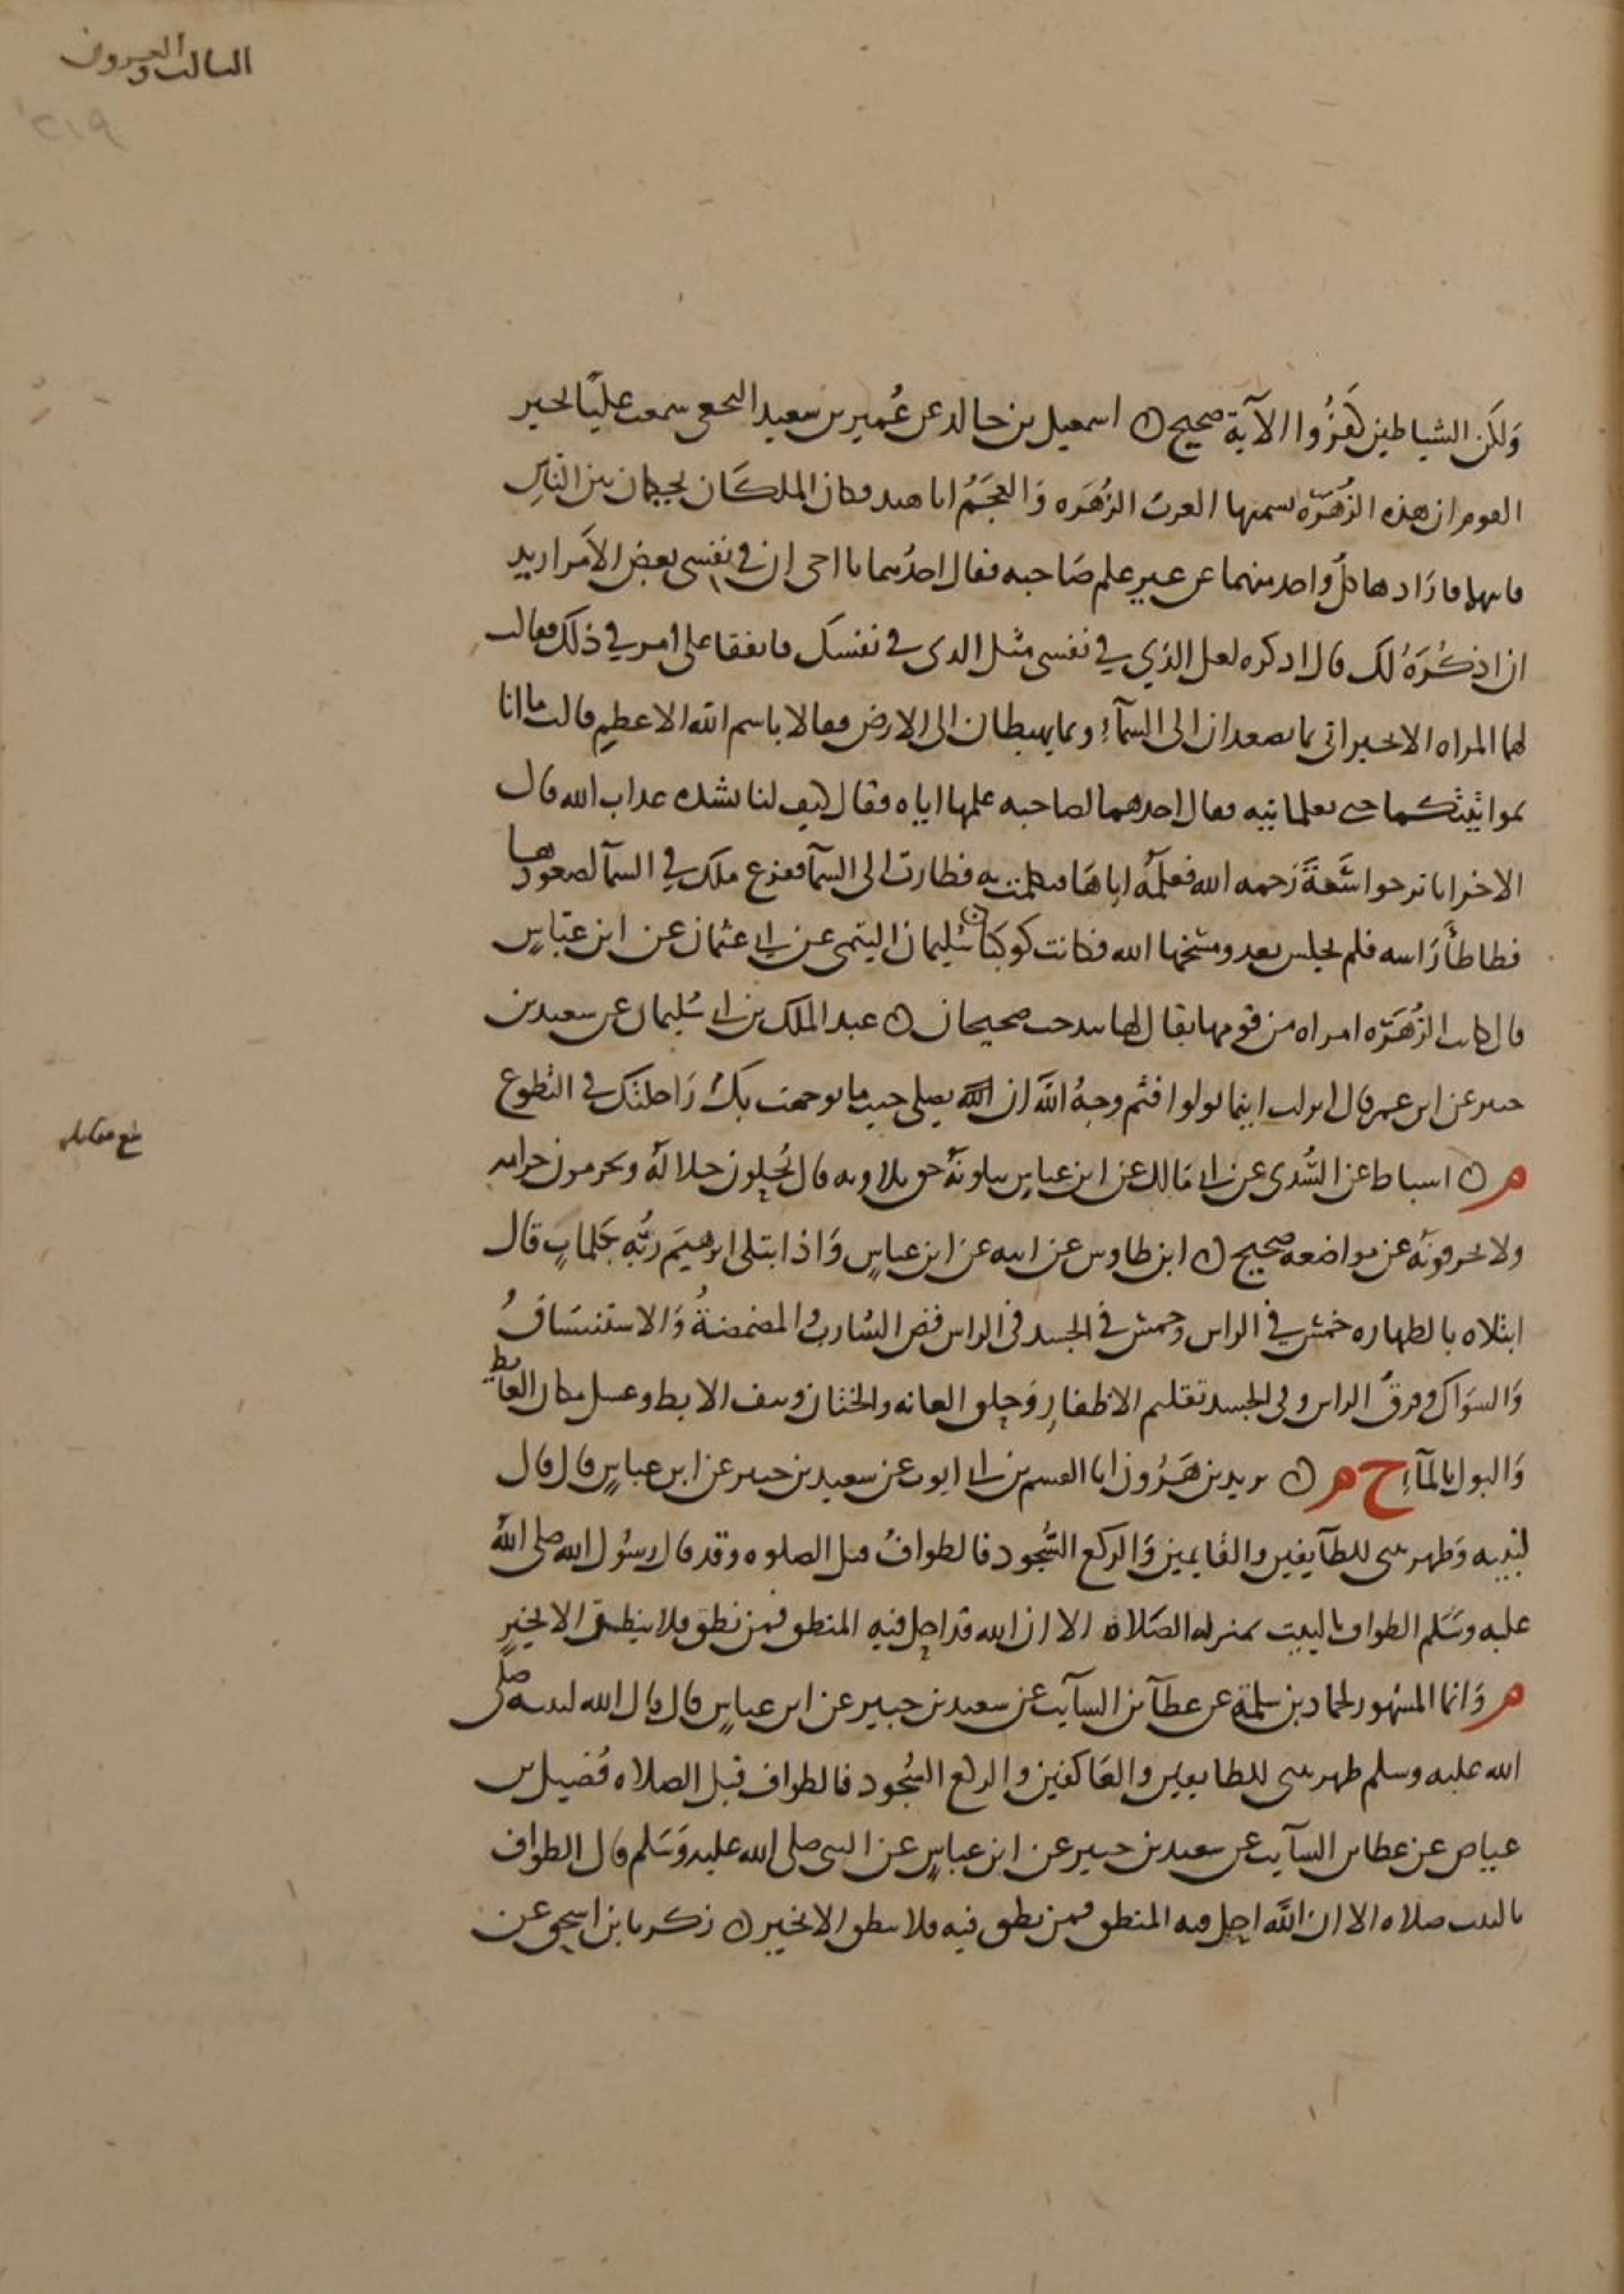 الثالث والعشرون
٢١٩
وَلكن الشياطين كفَرُوا الآية صحيح ن اسمعيل بن خالد عن عُمير بن سعيد النخعي سمعت عليًا يخبر
القوم ان هذه الزُهَرَة تسميها العربُ الزُهَرَه وَالعجَمُ اناهيد وكان الملكَان يحكمان بين الناسِ
فاتتهما فارَادها كلُ واحد منهما عن غير علم صَاحبه فقال احدُهما يا اخي ان في نفسي بعض الأمر اريد
ان اذكُرَهُ لك قال اذكره لعل الذي في نفسي مثل الذي في نفسك فاتفقا على امر في ذلك فقالت
لهما المراه الا تخبراني بما تصعدان الى السمآء وبما تهبطان الى الارض فقالا باسم الله الاعظم قالت ما انا
بمواتيتكما حتى تعلمانيه فقال احدهما لصاحبه علمها اياه فقال كيف لنا بشدة عذاب الله قال
الاخر انا نرجوا سَعَةَ رَحمه الله فعلمَهُ اياهَا فتكلمت به فطارت الى السمآ ففزع ملك في السمآ لصعودها
فطاطأ رَاسه فلم يجلس بعد ومسخها الله فكانت كوكبًا ن سُليمان التيمي عن ابي عثمان عن ابن عباسٍ
قال كانت الزُهَرَة امراه من قومها يقال لها بيدخت صحيحان ن عبد الملك بن ابي سُليمان عن سعيد بن
جبير عن ابن عمر قال انزلت اينما تولوا فثم وجهُ اللهَ ان الله يصلي حيث ما توجهت بك رَاحلتك في التطوع
م ن اسباط عن السُّدي عن ابي مَالك عن ابن عباسٍ يتلونَهُ حق تلاوته قال يُحلون حلالَهُ ويحرمون حرامه
ولا يحرفونَه عن مواضعه صحيح ن ابن طاوس عن ابيه عن ابن عباسٍ وَاذ ابتلى ابرهيمَ ربُّه بكلماتٍ قال
ابتلاه بالطهاره خمسٌ في الراس وخمسٌ في الجسد في الراس قص الشاربُ والمضمضةُ وَالاستنشاقُ
وَالسوَاك وفرقُ الراس وفي الجسد تقليم الاظفارِ وَحلق العانه والختان ونتف الابط وغسل مكان الغايط
وَالبول بالمآءِ خ م ن يزيد بن هَرُون انا القسم بن ابي ايوب عن سعيد بن جبير عن ابن عباسٍ قال قال
لنبيه وَطهر بيتي للطآيفين والقايمين وَالركع السُّجود فالطوافُ قبل الصلوه وقد قال رسُول الله صلى اللهُ
عليه وسَلم الطواف بالبيت بمنزله الصَلاة الا ان الله قد احل فيه المنطق فمن نطق فلا ينطق الا بخيرٍ
م وَانما المشهور لحماد بن سلمة عن عطآ بن السآيب عن سعيد بن جبير عن ابن عباسٍ قال قال الله لنبيه صلى
الله عليه وسلم طهر بيتي للطايفين والعَاكفين والركع السُجود فالطواف قبل الصلاه فُضيل بن
عياض عن عطا بن السآيب عن سعيد بن جبير عن ابن عباسٍ عن النبي صلى الله عليه وَسَلم قال الطواف
بالبيت صلاه الا ان اللهَ احل فيه المنطق فمن نطق فيه فلا ينطق الا بخير ن زكريا بن اسحق عن